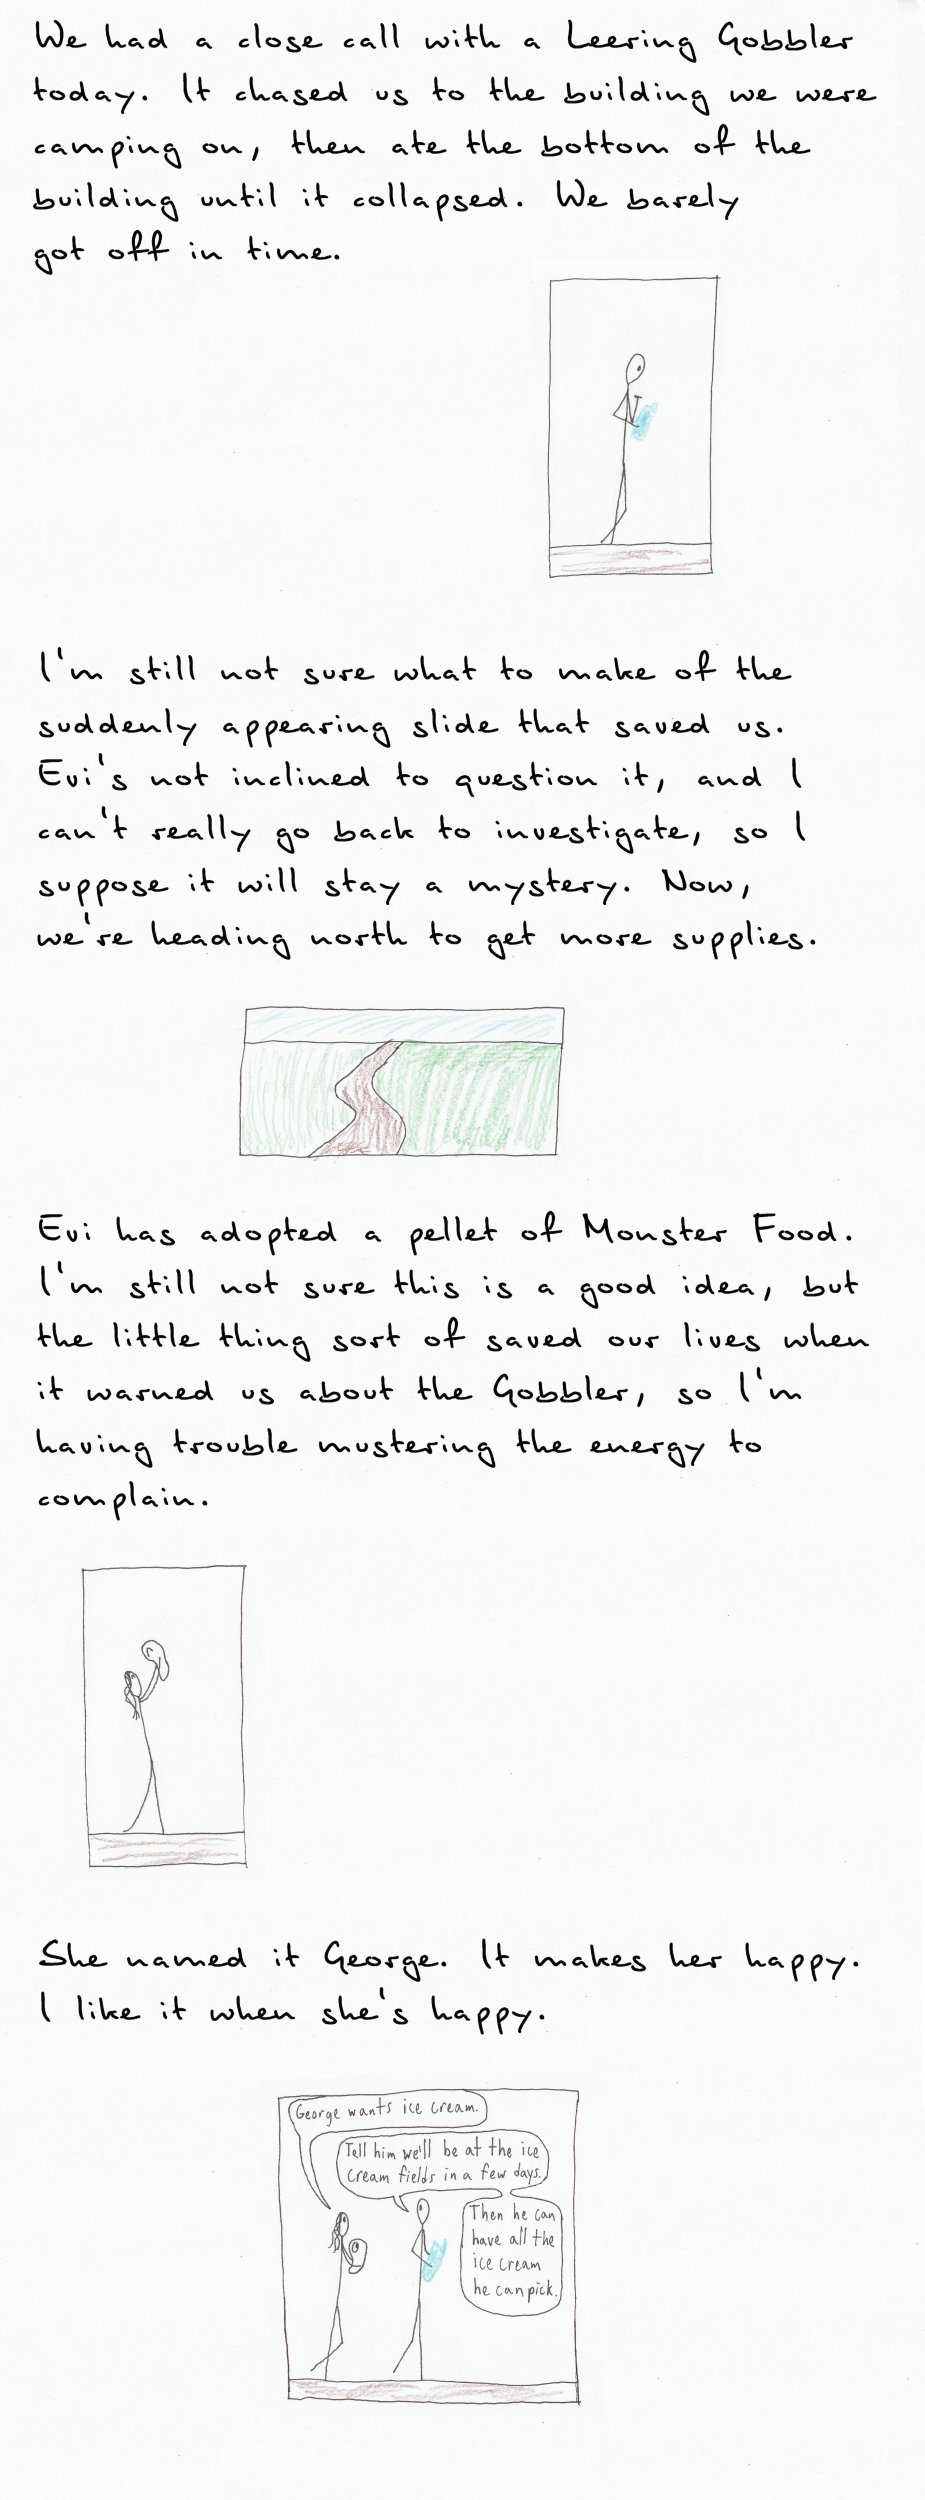 We had a close call with a Leering Gobbler
today. It chased us to the building we were
camping on, then ate the bottom of the
building until it collapsed. We barely
got off in time.
I'm still not sure what to make of the
suddenly appearing slide that saved us.
Evi's not inclined to question it, and I
can't really go back to investigate, so I
suppose it will stay a mystery. Now,
we're heading north to get more supplies.
Evi has adopted a pellet of Monster Food.
I'm still not sure this is a good idea, but
the little thing sort of saved our lives when
it warned us about the Gobbler, so I'm
having trouble mustering the energy to
complain.
She named it George. It makes her happy.
I like it when she's happy.
George wants ice cream.
Tell him we'll be at the ice
cream fields in a few days.
Then he can
have all the
ice cream
he can pick.